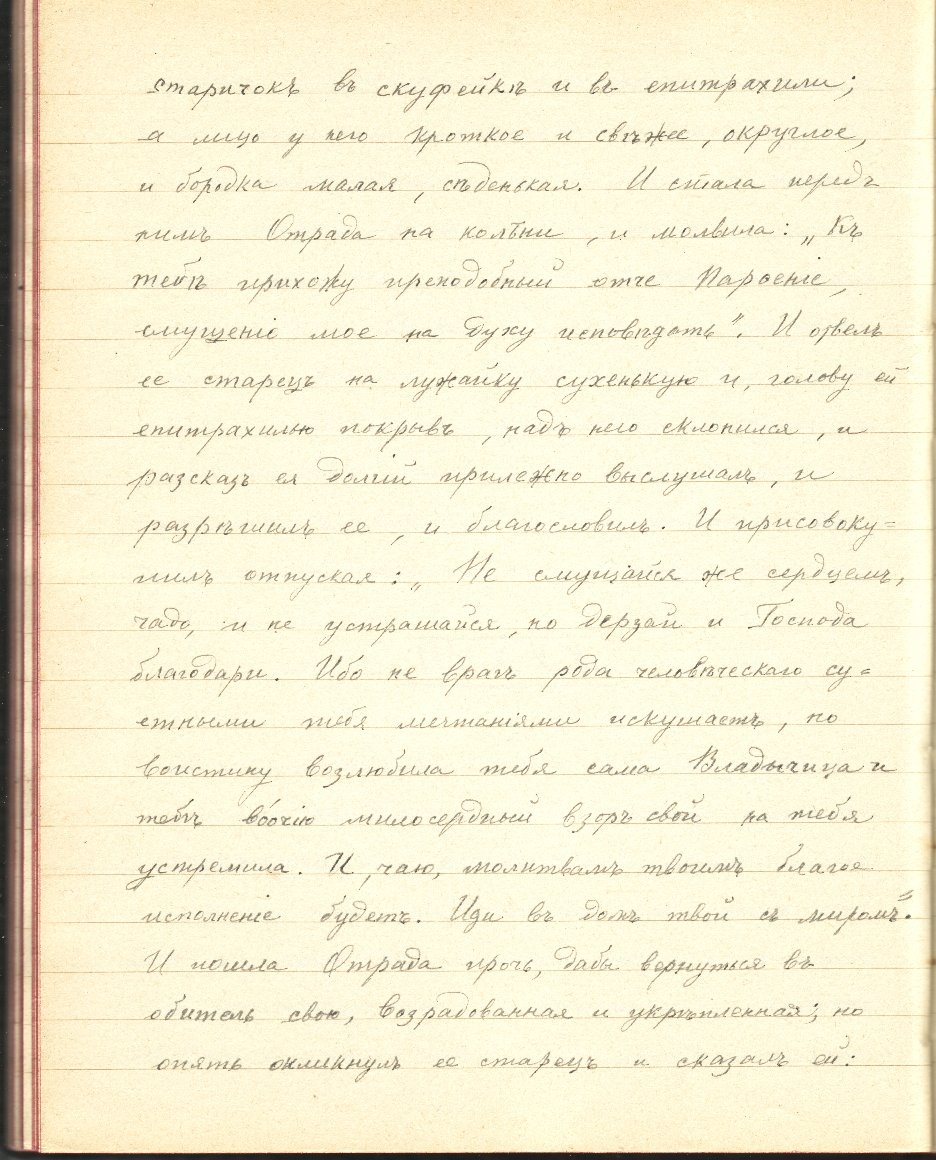 старичокъ въ скуфейкѣ и въ епитрахили;
а лицо у него кроткое и свѣжее, округлое,
и бородка малая, сѣденькая. И стала передъ
нимъ Отрада на колѣни, и молвила: „Къ
тебѣ прихожу преподобный отче Парѳеніе,
смущеніе мое на духу исповѣдать". И отвелъ
ее старецъ на лужайку сухенькую и, голову ей
епитрахилью покрывъ, надъ нею склонился, и
разсказъ ея долгій прилежно выслушалъ, и
разрѣшилъ ее, и благословилъ. И присовоку=
пилъ отпуская: „Не смущайся же сердцемъ,
чадо, и не устрашайся, но дерзай и Господа
благодари. Ибо не врагъ рода человѣческаго су=
етными тебя мечтаніями искушаетъ, но
воистину возлюбила тебя сама Владычица и
тебѣ воочію милосердный взоръ свой на тебя
устремила. И, чаю, молитвамъ твоимъ благое
исполненіе будетъ. Иди въ домъ твой съ миромъ".
И пошла Отрада прочь, дабы вернуться въ
обитель свою, возрадованная и укрѣпленная; но
опять окликнулъ ее старецъ и сказалъ ей: